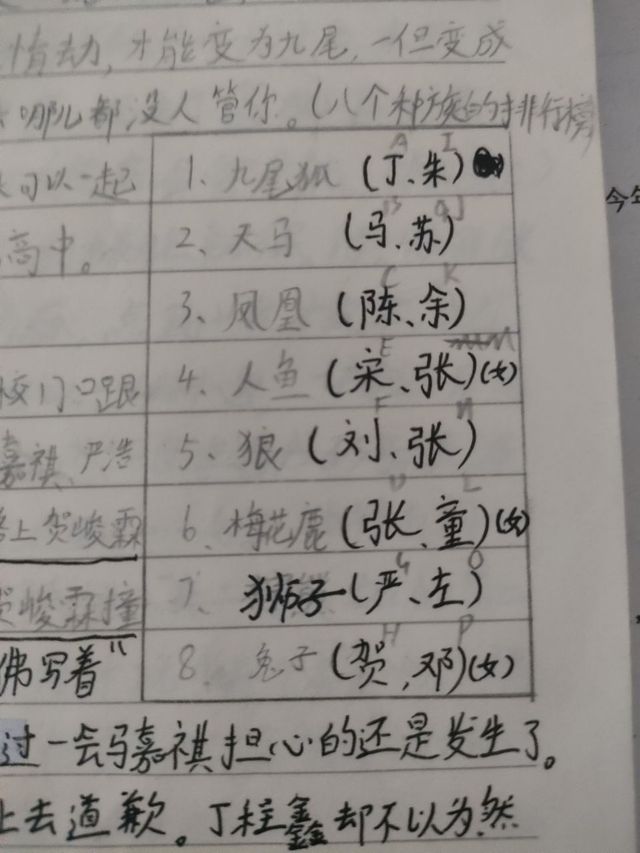 情劫,才能变为九尾,一但变成
哪儿都没人管你。(八个种族的排行榜
可以一起
1、九尾狐(丁、朱)
A I
今年
高中。
2、天马(马、苏)
B J
3、凤凰(陈、余)
C K
校门口跟
4、人鱼(宋、张)(女)
E M
嘉祺、严浩
5、狼(刘、张)
F N
上贺峻霖
6、梅花鹿(张、童)(女)
D L
贺峻霖撞
7、狮子(严、左)
G O
佛写着"
8、兔子(贺,邓)(女)
H P
过一会马嘉祺担心的还是发生了。
上去道歉。丁程鑫却不以为然